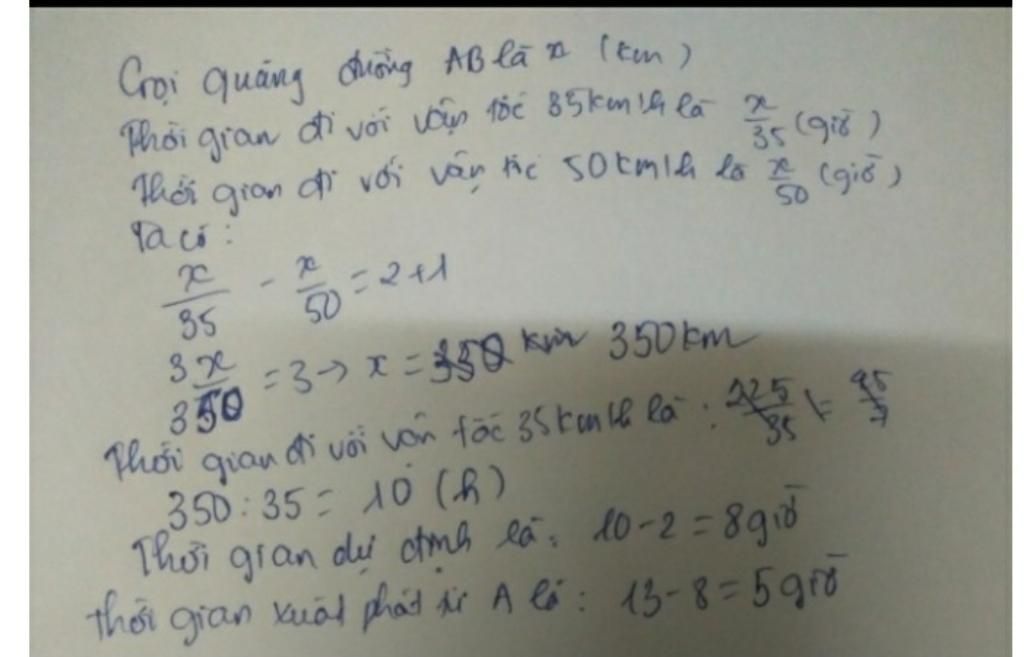 Gọi quãng đường AB là x (km)
Thời gian đi với vận tốc 35km/h là x/35 (giờ)
Thời gian đi với vận tốc 50km/h là x/50 (giờ)
Ta có:
x/35 - x/50 = 2+1
3x/350 = 3 → x = 350 km 350km
Thời gian đi với vận tốc 35km/h là: 225/35 = 45/7
350:35 = 10 (h)
Thời gian dự định là: 10-2=8giờ
thời gian xuất phát từ A là: 13-8=5giờ